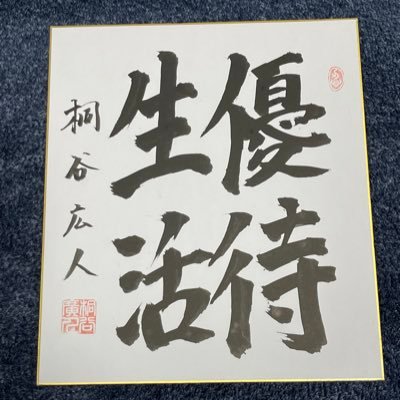 優待
生活
桐谷広人